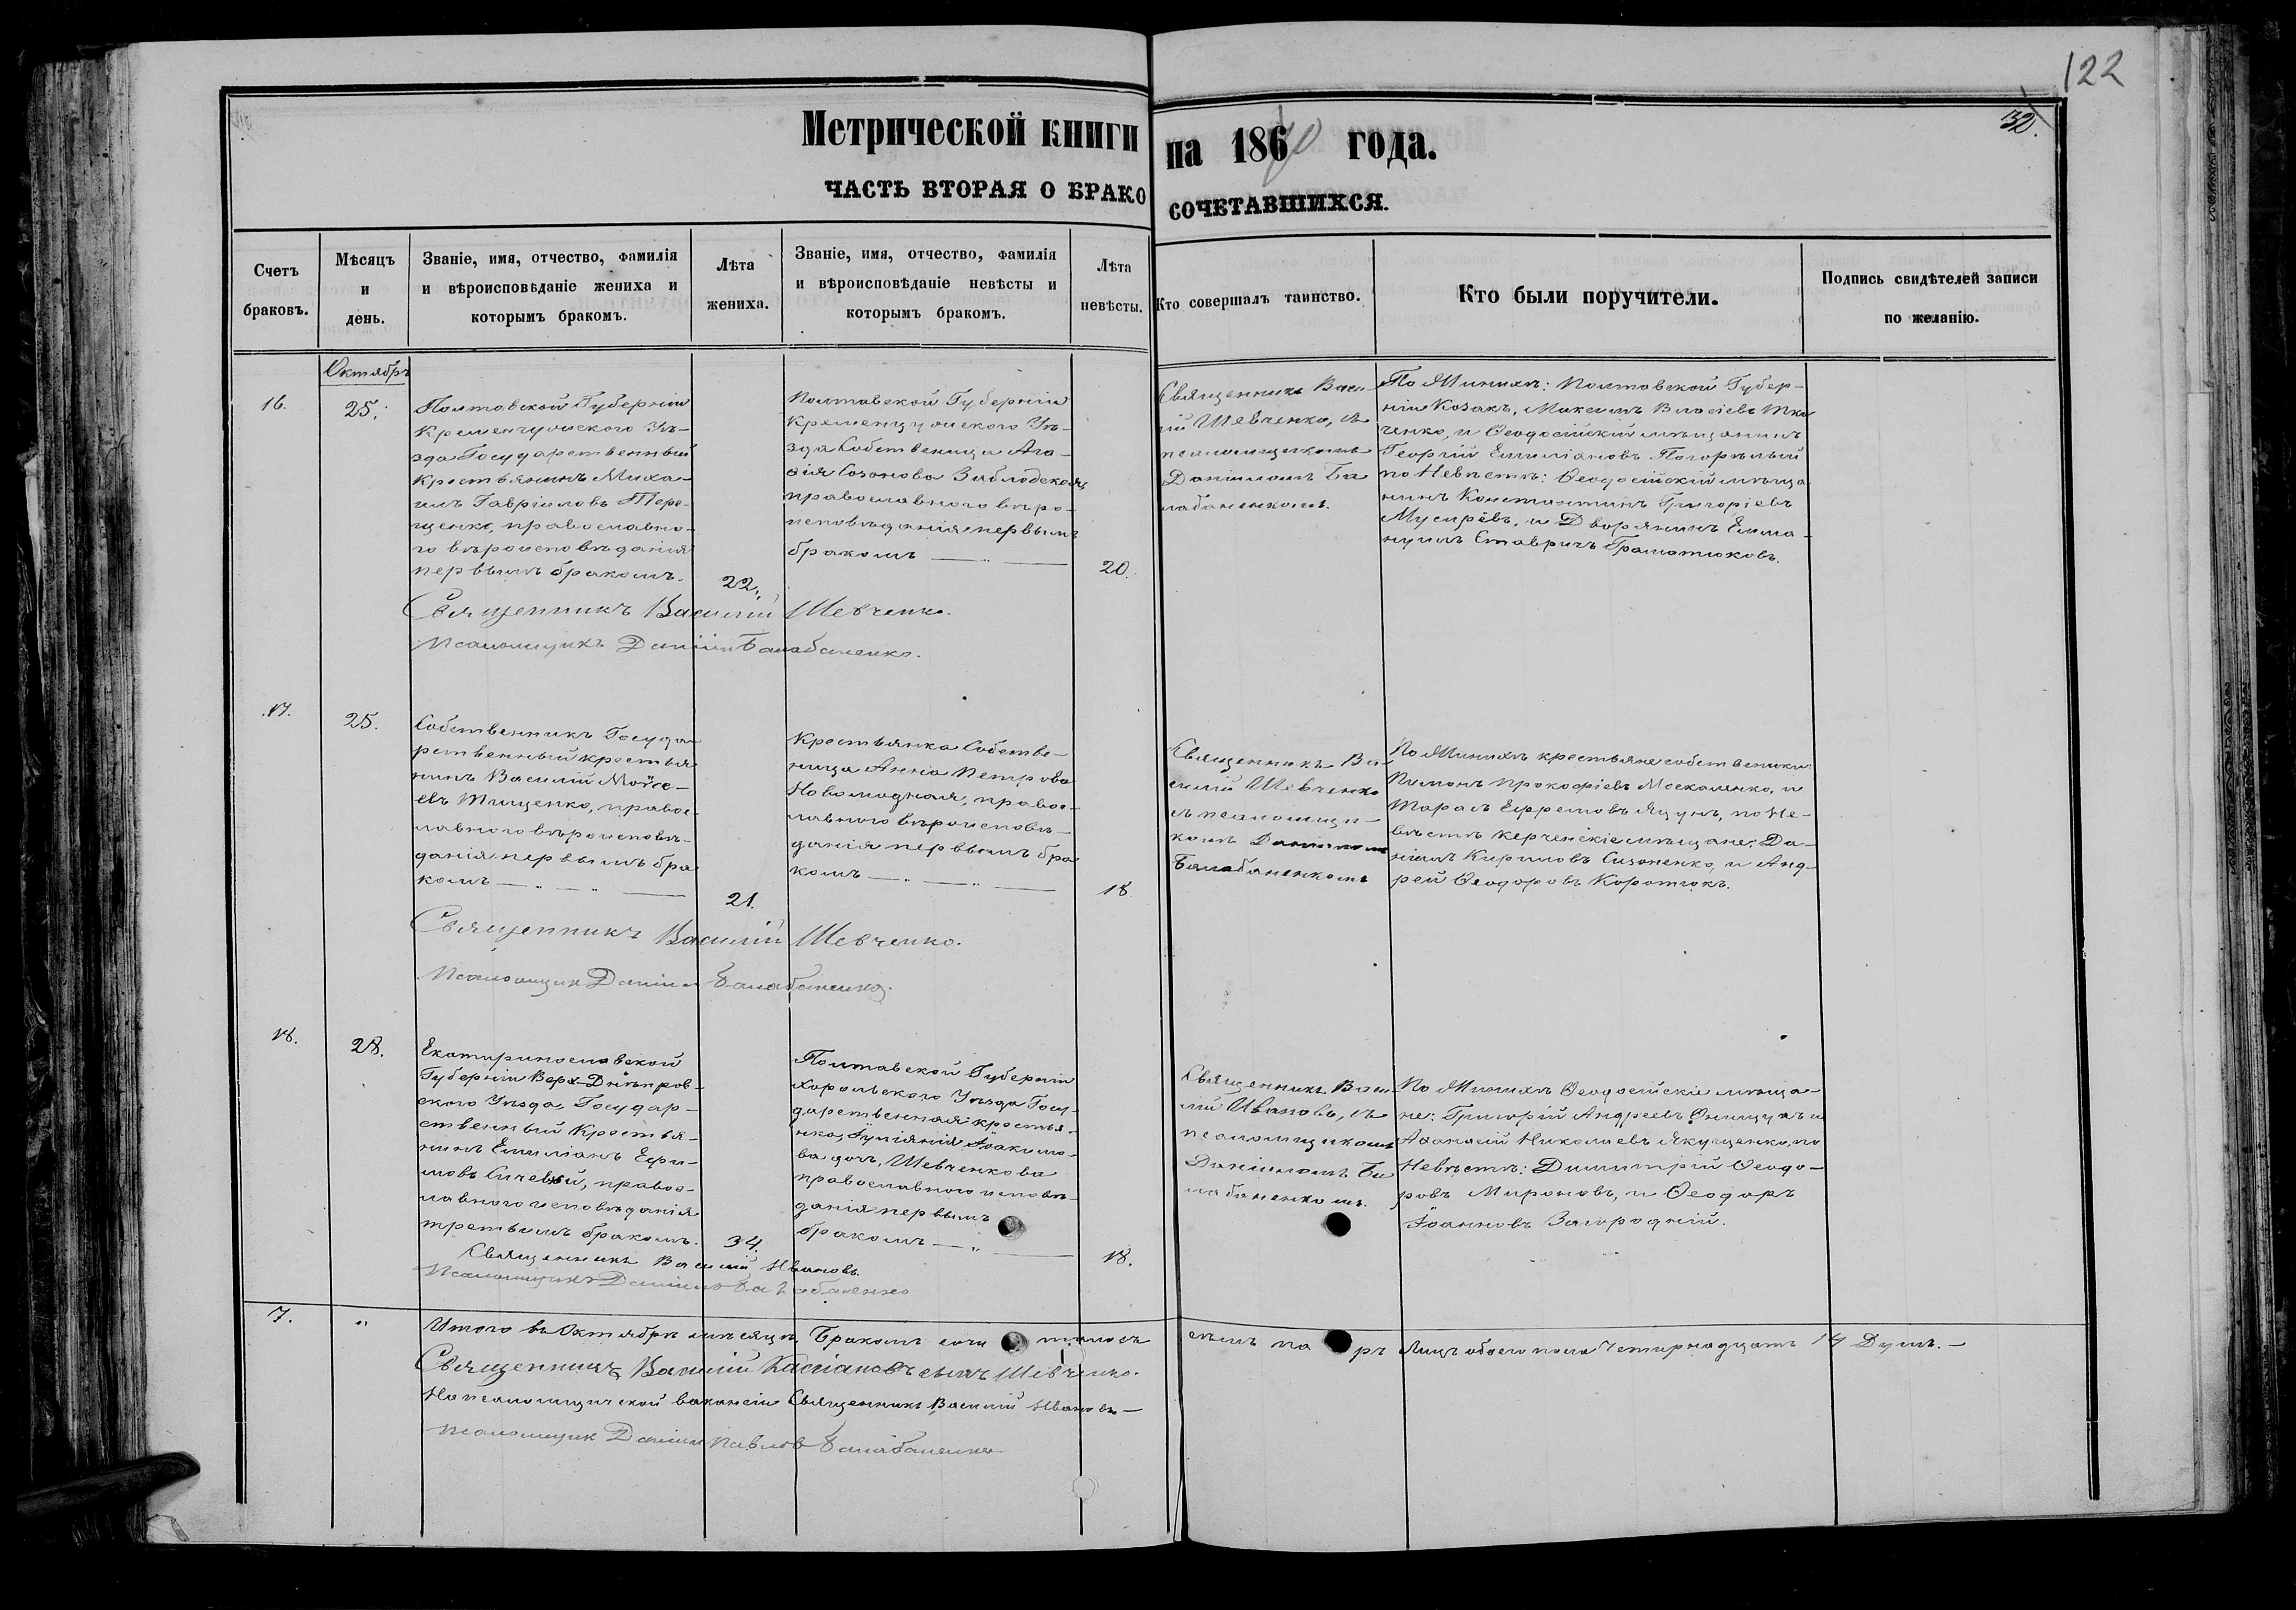 122
32.
Метрической книги на 1870 года.
ЧАСТЬ ВТОРАЯ О БРАКОСОЧЕТАВШИХСЯ.
Счетъ браковъ.
Мѣсяцъ и день.
Званіе, имя, отчество, фамилія
и вѣроисповѣданіе жениха и
которымъ бракомъ.
Лѣта жениха.
Званіе, имя, отчество, фамилія
и вѣроисповѣданіе невѣсты и
которымъ бракомъ.
Лѣта невѣсты.
Кто совершалъ таинство.
Кто были поручители.
Подпись свидѣтелей записи
по желанію.
Октябрь
16.
25.
Полтавской Губерніи
Кременчугского Уѣ-
зда Государственный
Крестьянинъ Миха-
илъ Гавріиловъ Тере-
щенко, православно-
го вѣроисповѣданія
первымъ бракомъ.
22.
Полтавской Губерніи
Кременчугского Уѣ-
зда Собственица Ага-
фія Созонова Заблодская
православнаго вѣро-
исповѣданія первымъ
бракомъ
20.
Священникъ Васи-
лій Шевченко, съ
псаломщикомъ
Даніиломъ Ба
лабаненкомъ.
По Женихѣ: Полтавской Губер-
ніи Козакъ, Максимъ Власіевъ Тка
ченко, и Ѳеодосійскій мѣщанинъ
Георгій Емиліановъ Погорѣлый
по Невѣстѣ: Ѳеодосійскій мѣща
нинъ Константинъ Григоріевъ
Мусирѣвъ, и Дворянинъ Емма-
нуилъ Ставричъ Граматиковъ.
Священникъ Василій Шевченко.
Псаломщикъ Даніилъ Балабаненко.
17.
25.
Собственникъ Госуда
рственный крестья
нинъ Василій Мойсе-
евъ Тищенко, правос-
лавного вѣроисповѣ-
данія первымъ бра
комъ
21.
Крестьянка Собстве-
ница Анна Петрова
Новомодная, правос-
лавного вѣроисповѣ-
данія первымъ бра
комъ
18
Священникъ Ва-
силій Шевченко
съ псаломщи-
комъ Даніиломъ
Балабаненкомъ
По Женихѣ крестьяне собственики
Пименъ Прокофіевъ Москаленко, и
Тарасъ Ефремовъ Яцунъ, по Не-
вѣстѣ керченскіе мѣщане: Да-
ніилъ Кириловъ Сизоненко, и Анд-
рей Ѳеодоровъ Коротюкъ.
Священникъ Василій Шевченко.
Псаломщик Даніил Балабаненко.
18.
28.
Екатиринославской
Губерніи Верх-Днѣпров-
ского Уѣзда, Государ-
ственный Крестья-
нинъ Емиліанъ Ефи-
мовъ Сичевый, правос-
лавного исповѣданія
третьимъ бракомъ.
34.
Полтавской Губерніи
Хорольского Уѣзда Госу-
дарственная крестья-
нка, Іуліянія Іоакимо-
ва доч, Шевченкова
православного исповѣ-
данія первымъ
бракомъ
18.
Священникъ Васи
лій Ивановъ, съ
псаломщикомъ
Даніиломъ Ба
лабаненкомъ.
По Женихѣ Ѳеодосійскіе мѣща-
не: Григорій Андреевъ Онищукъ и
Аѳанасій Николаевъ Якущенко, по
Невѣстѣ: Димитрій Ѳеодо-
ровъ Мироновъ, и Ѳеодоръ
Іоанновъ Загородній.
Священникъ Василій Ивановъ.
Псаломщикъ Даніилъ Балабаненко
7.
Итого въ Октябрѣ мѣсяцѣ, Бракомъ соч талось семь па ръ Лицъ обоего пола Четырнадцать 14 Душъ.
Священникъ Василій Кассіановъ сынъ Шевченко.
На псаломщической вакансіи Священникъ Василій Ивановъ
Псаломщик Даніил Павлов Балабаненко